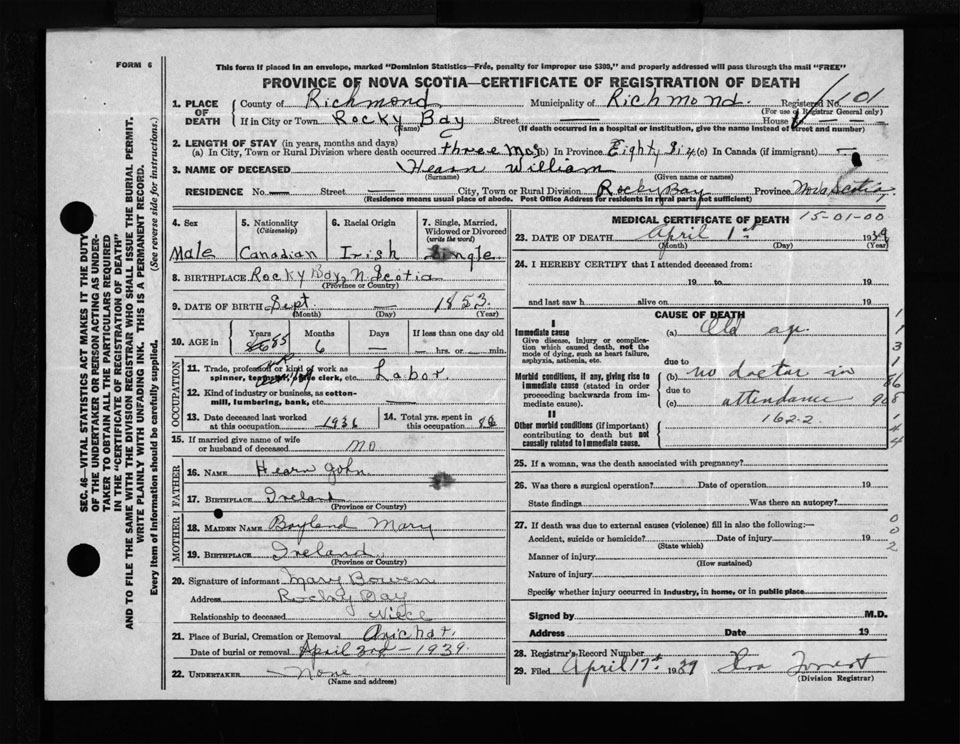 FORM 6
This form if placed in an envelope, marked "Dominion Statistics—Free, penalty for improper use $300," and properly addressed will pass through the mail "FREE"
PROVINCE OF NOVA SCOTIA—CERTIFICATE OF REGISTRATION OF DEATH
1. PLACE OF DEATH County of Richmond Municipality of Richmond. Registered No. 101
(For use of Registrar General only)
If in City or Town Rocky Bay Street — House —
(Name) (If death occurred in a hospital or institution, give the name instead of street and number)
2. LENGTH OF STAY (in years, months and days)
(a) In City, Town or Rural Division where death occurred three Mos (b) In Province Eighty Six (c) In Canada (if immigrant) —
3. NAME OF DECEASED Hearn William
(Surname) (Given name or names)
RESIDENCE No. — Street — City, Town or Rural Division Rocky Bay Province Nova Scotia
(Residence means usual place of abode. Post Office Address for residents in rural parts not sufficient)
4. Sex Male
5. Nationality (Citizenship) Canadian
6. Racial Origin Irish
7. Single, Married, Widowed or Divorced (write the word) Single
8. BIRTHPLACE Rocky Bay, N. Scotia
(Province or Country)
9. DATE OF BIRTH Sept. — 1853.
(Month) (Day) (Year)
10. AGE in Years 85 Months 6 Days — If less than one day old — hrs. or — min.
OCCUPATION
11. Trade, profession or kind of work as spinner, teamster, office clerk, etc. Labor.
12. Kind of industry or business, as cotton-mill, lumbering, bank, etc. —
13. Date deceased last worked at this occupation 1936
14. Total yrs. spent in this occupation
15. If married give name of wife or husband of deceased
FATHER
16. NAME Hearn John
17. BIRTHPLACE Ireland
(Province or Country)
MOTHER
18. MAIDEN NAME Boyland Mary
19. BIRTHPLACE Ireland
(Province or Country)
20. Signature of informant Mary Bowen
Address Rocky Bay
Relationship to deceased Niece
21. Place of Burial, Cremation or Removal Arichat.
Date of burial or removal April 3rd — 1939.
22. UNDERTAKER None
(Name and address)
MEDICAL CERTIFICATE OF DEATH 15-01-00
23. DATE OF DEATH April 1st 1939
(Month) (Day) (Year)
24. I HEREBY CERTIFY that I attended deceased from:
19 to 19
and last saw h alive on 19
CAUSE OF DEATH
I
Immediate cause (a) Old age
Give disease, injury or complication which caused death, not the mode of dying, such as heart failure, asphyxia, asthenia, etc.
due to
Morbid conditions, if any, giving rise to immediate cause (stated in order proceeding backwards from immediate cause).
(b) no doctor in
due to
(c) attendance
II
Other morbid conditions (if important) contributing to death but not causally related to immediate cause.
162-2
25. If a woman, was the death associated with pregnancy?
26. Was there a surgical operation? Date of operation 19
State findings Was there an autopsy?
27. If death was due to external causes (violence) fill in also the following:—
Accident, suicide or homicide? Date of injury 19
(State which)
Manner of injury
(How sustained)
Nature of injury
Specify whether injury occurred in industry, in home, or in public place
Signed by M.D.
Address Date 19
28. Registrar's Record Number
29. Filed April 17th 1939
(Division Registrar)
SEC. 46—VITAL STATISTICS ACT MAKES IT THE DUTY
OF THE UNDERTAKER OR PERSON ACTING AS UNDERTAKER TO OBTAIN ALL THE PARTICULARS REQUIRED
IN THE "CERTIFICATE OF REGISTRATION OF DEATH"
AND TO FILE THE SAME WITH THE DIVISION REGISTRAR WHO SHALL ISSUE THE BURIAL PERMIT.
WRITE PLAINLY WITH UNFADING INK. THIS IS A PERMANENT RECORD.
Every item of information should be carefully supplied. (See reverse side for instructions.)